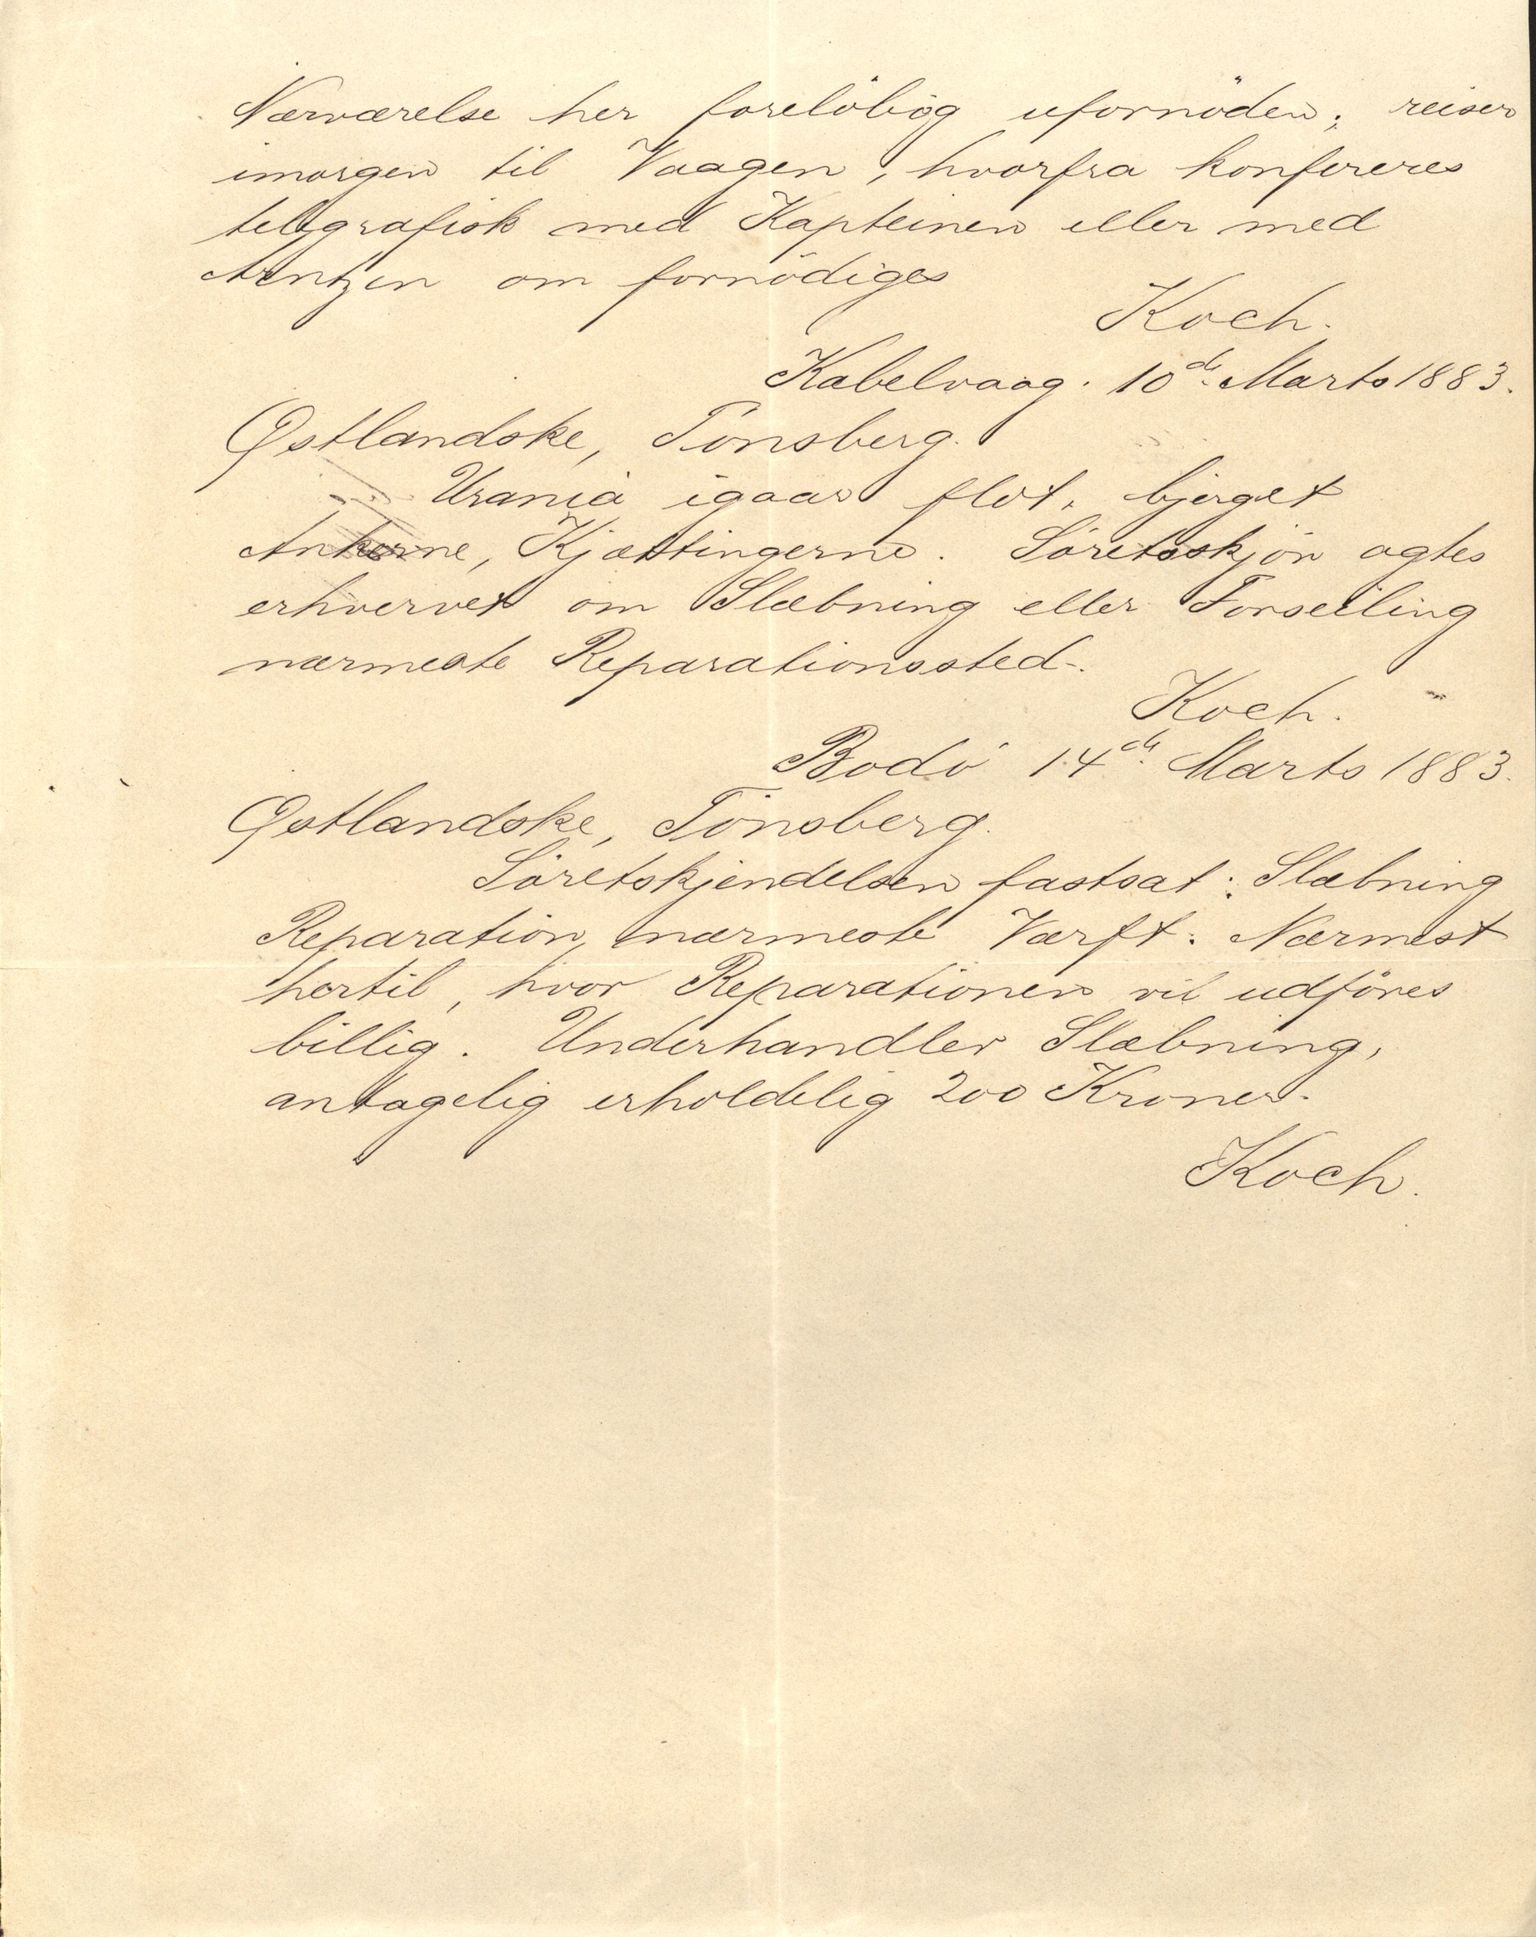 Nærværelse her foreløbig ufornøden; reiser
imorgen til Vaagen, hvorfra konfereres
telegrafisk med Kapteinen eller med
Arntzen om fornødiges
Koch.
Kabelvaag. 10de Marts 1883.
Østlandske, Tönsberg.
Urania igaar flot, bjerget
Ankerne, Kjættingerne. Söretsskjön agtes
erhvervet om Slæbning eller Forseiling
nærmeste Reparationssted.
Koch.
Bodö 14de Marts 1883.
Østlandske, Tönsberg.
Söretskjendelsen fastsat: Slæbning
Reparation, nærmeste Værft. Nærmest
hertil, hvor Reparationen vil udföres
billig. Underhandler Slæbning,
antagelig erholdelig 200 Kroner.
Koch.